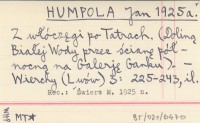 HUMPOLA Jan 1925 a.
Z włóczęgi po Tatrach. (Doliną
Białej Wody przez ścianę pół-
nocną na Galerję Ganku). -
Wierchy (Lwów) 3: 225-243, il.
Rec.: Świerz M. 1925 n
MT*